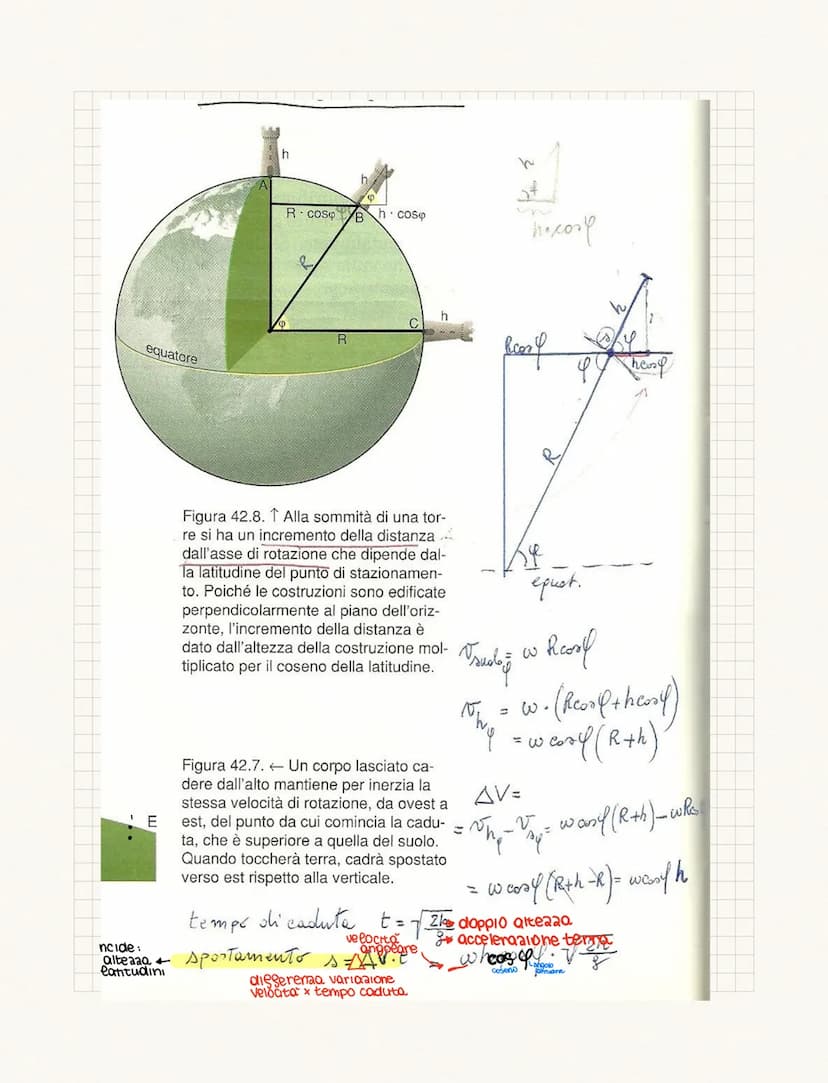 h
A
h
φ
R · cosφ
B
h · cosφ
h
h · cosφ
R
φ
C
h
R
equatore
h
Rcosφ
φ
φ
hcosφ
R
φ
equat.
Figura 42.8. ↑ Alla sommità di una tor-
re si ha un incremento della distanza
dall'asse di rotazione che dipende dal-
la latitudine del punto di stazionamen-
to. Poiché le costruzioni sono edificate
perpendicolarmente al piano dell'oriz-
zonte, l'incremento della distanza è
dato dall'altezza della costruzione mol-
tiplicato per il coseno della latitudine.
v suolo φ = ω Rcosφ
v hφ = ω · (Rcosφ + hcosφ)
= ω cosφ (R+h)
Figura 42.7. ← Un corpo lasciato ca-
dere dall'alto mantiene per inerzia la
stessa velocità di rotazione, da ovest a
est, del punto da cui comincia la cadu-
ta, che è superiore a quella del suolo.
Quando toccherà terra, cadrà spostato
verso est rispetto alla verticale.
E
ΔV =
= v hφ - v sφ = ω cosφ (R+h) - ωRco
= ω cosφ (R+h-R) = ω cosφ h
tempo di caduta t = √2h/g
doppio altezza
accelerazione terra
ncide:
altezza
latitudini
spostamento s = ΔV · t = ωh cosφ · √2h/g
velocità
angolare
coseno
differenza variazione
velocità × tempo caduta